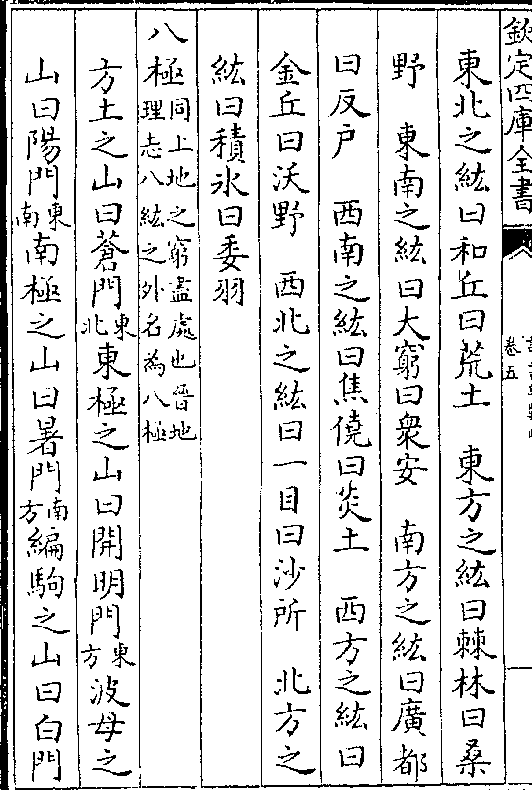 欽定四庫全書
卷五
東北之紘曰和丘曰荒土　東方之紘曰棘林曰桑
野　東南之紘曰大窮曰衆安　南方之紘曰廣都
曰反户　西南之紘曰焦僥曰炎土　西方之紘曰
金丘曰沃野　西北之紘曰一目曰沙所　北方之
紘曰積氷曰委羽
八極同上地之窮盡處也晉地理志八紘之外名為八極
方土之山曰蒼門東北東極之山曰開明門東方波母之
山曰陽門東南南極之山曰暑門南方編駒之山曰白門